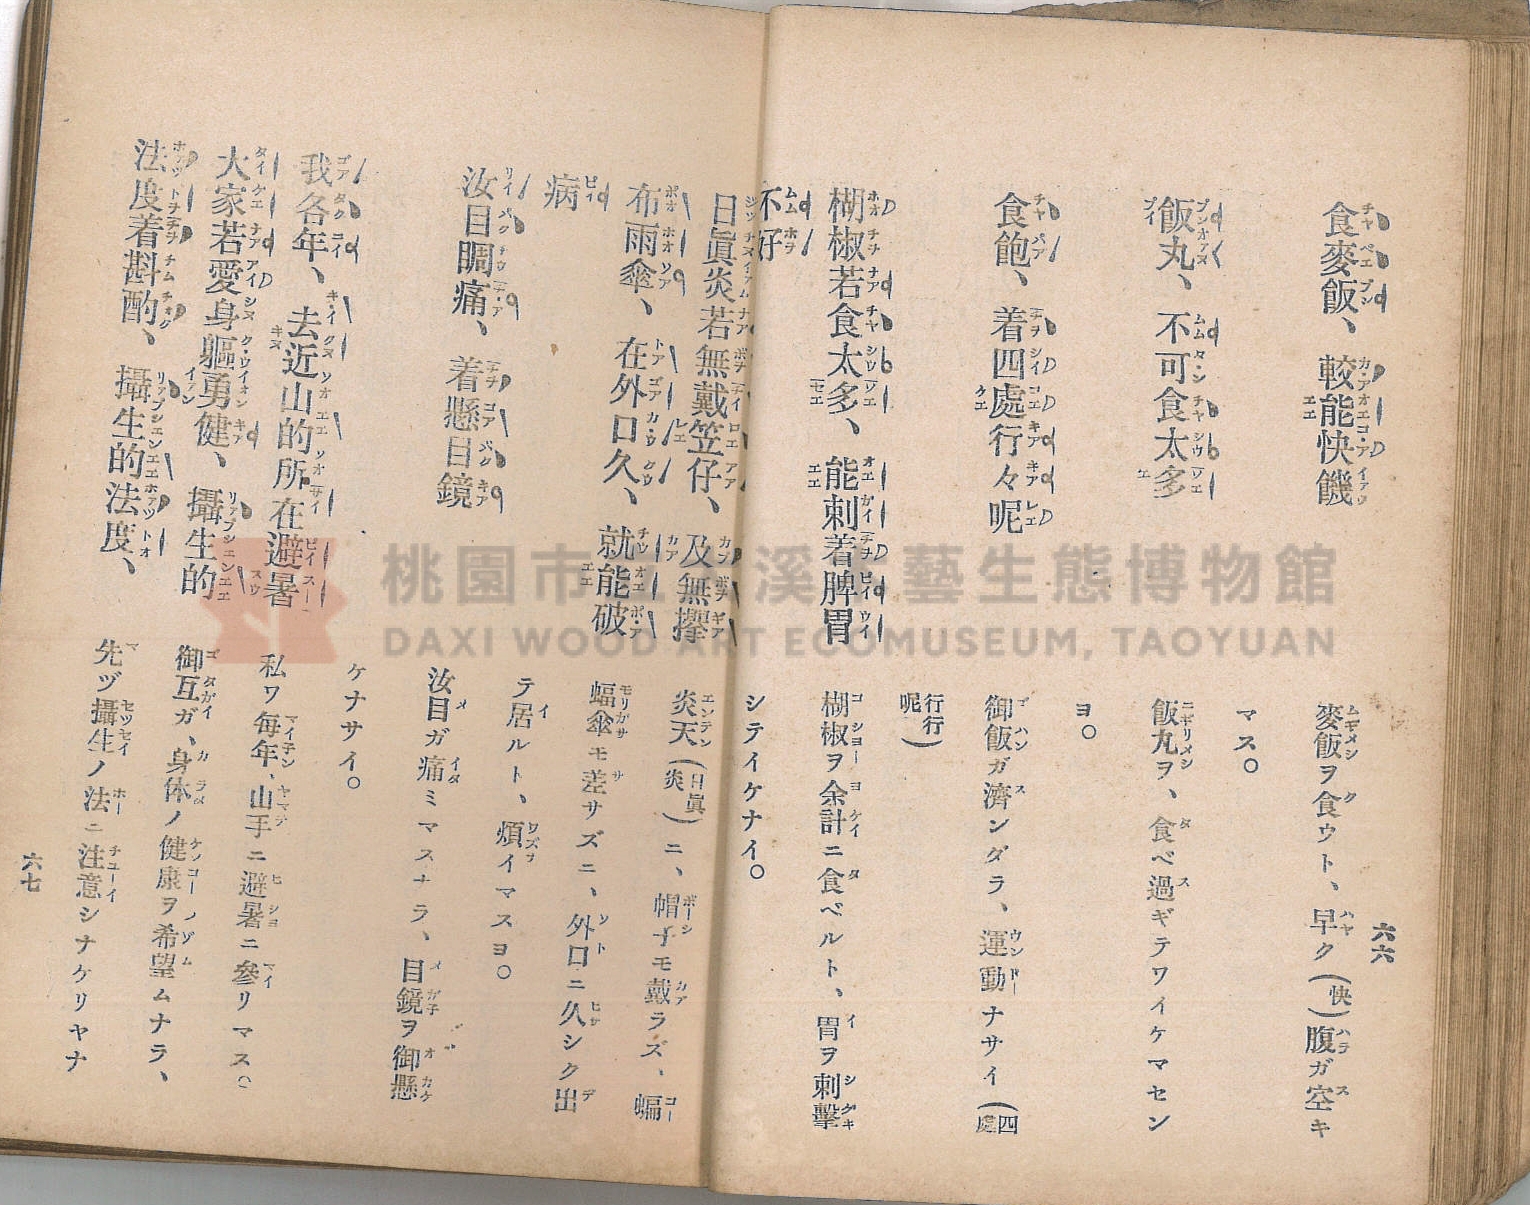 六六
食麥飯、較能快饑
麥飯ヲ食ウト、早ク(快)腹ガ空キ
マス。
飯丸、不可食太多
飯丸ヲ、食ベ過ギテワイケマセン
ヨ。
食飽、着四處行々呢
御飯ガ濟ンダラ、運動ナサイ(四處
行行呢)
糊椒若食太多、能刺着脾胃
不好
糊椒ヲ余計ニ食ベルト、胃ヲ刺擊
シテイケナイ。
日眞炎若無戴笠仔、及無攑
布雨傘、在外口久、就能破
病
炎天(日眞炎)ニ、帽子モ戴ラズ、蝙
蝠傘モ差サズニ、外口ニ久シク出
テ居ルト、煩イマスヨ。
汝目睭痛、着懸目鏡
汝目ガ痛ミマスナラ、目鏡ヲ御懸
ケナサイ。
我各年、去近山的所在避暑
私ワ每年、山手ニ避暑ニ參リマス。
大家若愛身軀勇健、攝生的
法度着斟酌、攝生的法度、
御互ガ、身体ノ健康ヲ希望ムナラ、
先ヅ攝生ノ法ニ注意シナケリヤナ
六七
桃園市立大溪木藝生態博物館
DAXI WOOD ART ECOMUSEUM, TAOYUAN